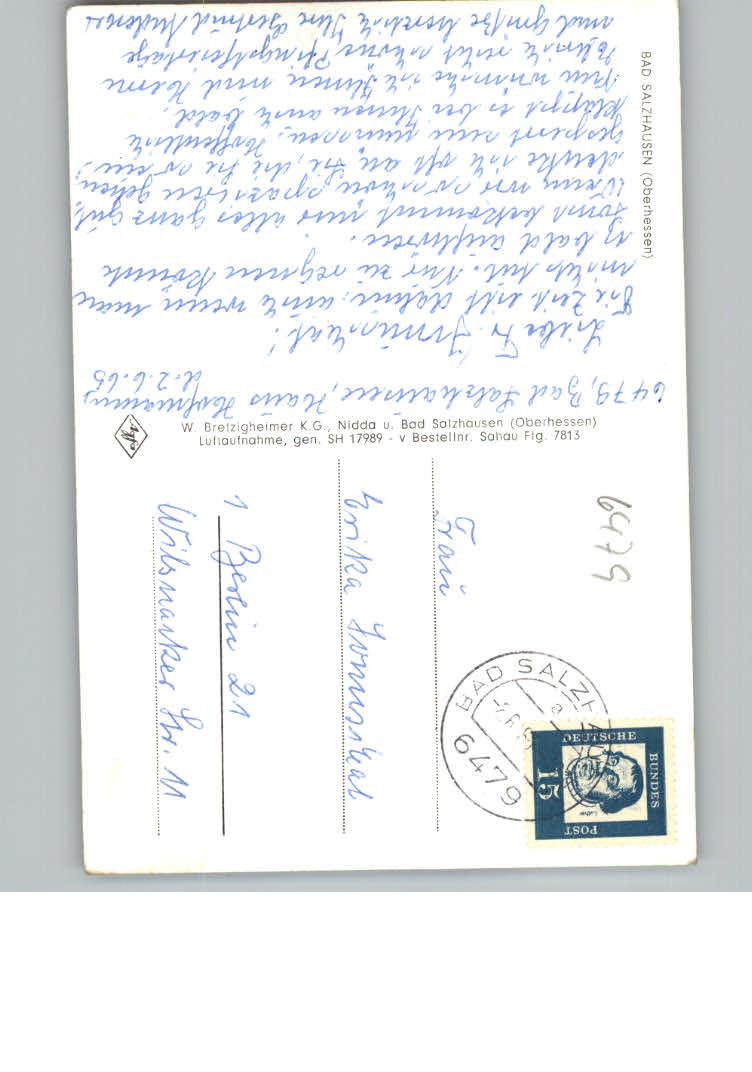 BAD SALZHAUSEN (Oberhessen)
6479, Bad Salzhausen, Haus Hofmann,
d. 2.6.65
Liebe Fr. !
Die Zeit eilt dahin, auch wenn man
nichts tut. Nur zu regnen könnte
es bald aufhören.
Sonst bekommt uns alles ganz gut.
Wenn wir so schön spazieren gehen,
denke ich oft an Sie, die Sie so ein-
gesperrt sein müssen. Hoffentlich
klappt es bei Ihnen auch bald.
Nun wünsche ich Ihnen und Herrn
recht schöne Pfingstfeiertage
und grüße herzlich Ihre Gertrud
W. Bretzigheimer K.G., Nidda u. Bad Salzhausen (Oberhessen)
Luftaufnahme, gen. SH 17989 - v Bestellnr. Sahau Flg. 7813
Agfa
6479
Frau
Erika
1 Berlin 21
Wilsnacker Str. 11
BAD SALZH
6479
DEUTSCHE
BUNDES
POST
15
Luther